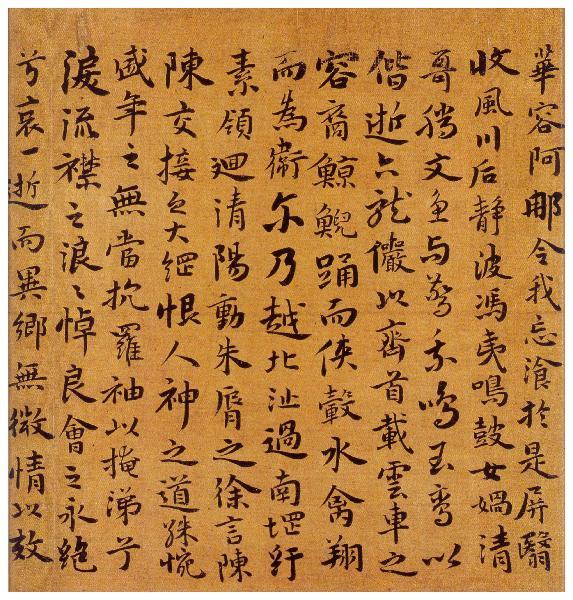 華容阿那令我忘飡於是屏翳
收風川后靜波馮夷鳴鼓女媧清
哥騰文魚与警乘鳴玉鸞以
偕逝六龍儼以齊首載雲車之
容裔鯨鯢踊而俠轂水禽翔
而為衛尔乃越北沚過南堽紆
素領迴清陽動朱脣之徐言陳
陳交接之大綱恨人神之道殊惋
盛年之無當抗羅袖以掩涕兮
淚流襟之浪〻悼良會之永絕
兮哀一逝而異鄉無微情以效